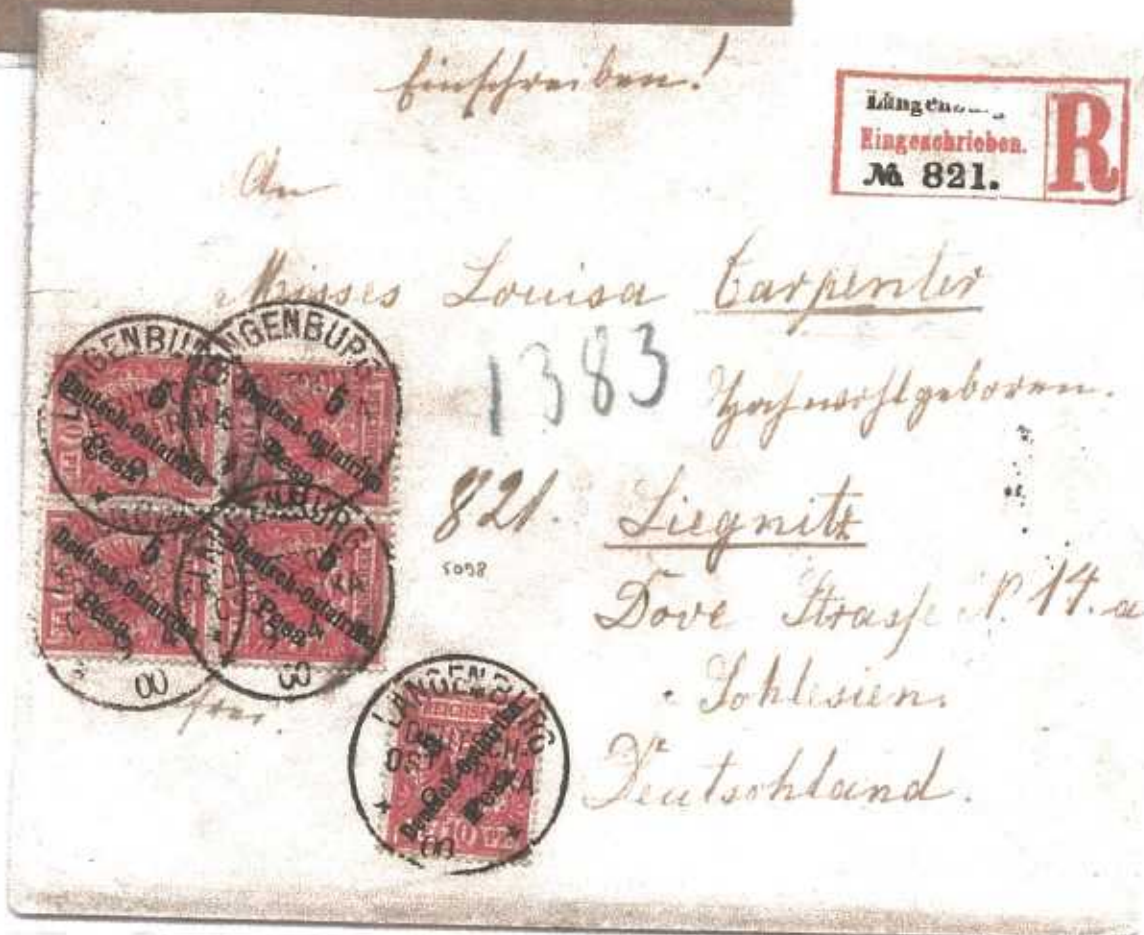 Einschreiben!
Eingeschrieben.
№ 821.
R
An
Misses Louisa Carpenter
1383
Hochwohlgeboren.
821. Liegnitz
5098
Dove Strasse N. 14. a
Schlesien.
Deutschland.
frei.
LANGENBURG
LANGENBURG
5
Deutsch-Ostafrika
Pesa
5
Deutsch-Ostafrika
Pesa
LANGENBURG
5
Deutsch-Ostafrika
Pesa
00
5
Deutsch-Ostafrika
Pesa
00
LANGENBURG
DEUTSCH-
OSTAFRIKA
REICHSPOST
5
Deutsch-Ostafrika
Pesa
10 PF
00